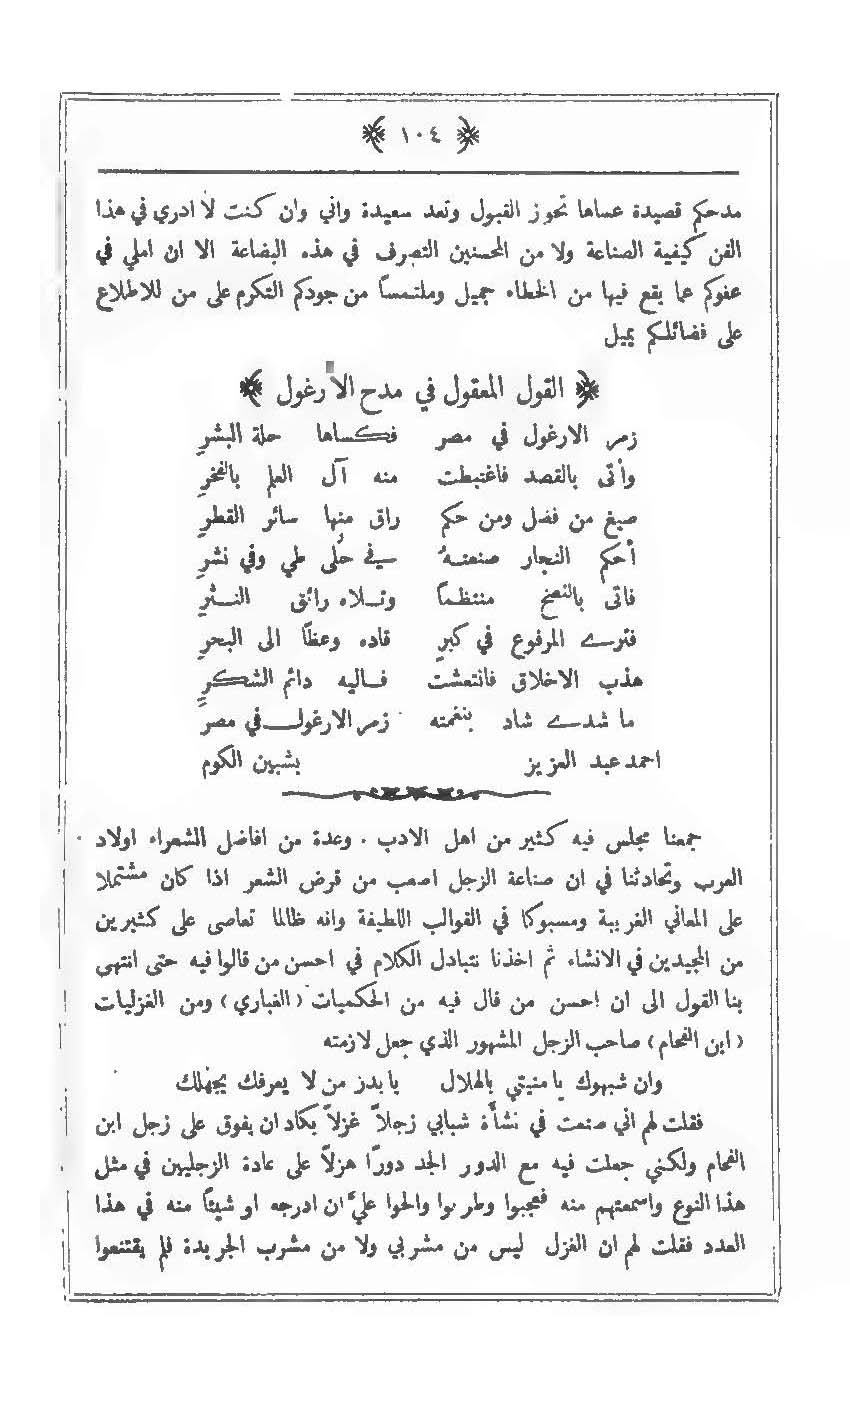 ١٠٤
مدحكم قصيدة عساها تحوز القبول وتعد سعيدة واني وان كنت لا ادري في هذا
الفن كيفية الصناعة ولا من المحسنين التصرف في هذه البضاعة الا ان املي في
عفوكم عما يقع فيها من الخطاء جميل وملتمساً من جودكم التكرم على من للاطلاع
على فضائلكم يميل
القول المعقول في مدح الأرغول
زمر الارغول في مصر فكساها حلة البشرِ
وأتى بالقصد فاغتبطت منه آل العلم بالفخرِ
صيغ من فضل ومن حكم راق منها سائر القطرِ
أحكم النجار صنعتهُ في حُلى طي وفي نشرِ
فاتى بالنصح منتظماً وتلاه رائق النثرِ
فترى المرفوع في كبرٍ قاده وعظاً الى البحرِ
هذب الاخلاق فانتعشت فاليه دائم الشكرِ
ما شدى شاد بنغمته زمر الارغول في مصرَ
احمد عبد العزيز بشبين الكوم
جمعنا مجلس فيه كثير من اهل الادب . وعدة من افاضل الشعراء اولاد
العرب وتحادثنا في ان صناعة الزجل اصعب من قرض الشعر اذا كان مشتملا
على المعاني الغريبة ومسبوكا في القوالب اللطيفة وانه طالما تعاصى على كثيرين
من المجيدين في الانشاء ثم اخذنا نتبادل الكلام في احسن من قالوا فيه حتى انتهى
بنا القول الى ان احسن من قال فيه من الحكميات (الغباري) ومن الغزليات
(ابن الفحام) صاحب الزجل المشهور الذي جعل لازمته
وان شبهوك يا منيتي بالهلال يا بدر من لا يعرفك يجهلك
فقلت لهم اني صنعت في نشأة شبابي زجلاً غزلاً يكاد ان يفوق على زجل ابن
الفحام ولكني جعلت فيه مع الدور الجد دورًا هزلاً على عادة الزجليين في مثل
هذا النوع واسمعتهم منه فعجبوا وطربوا والحوا عليَّ ان ادرجه او شيئاً منه في هذا
العدد فقلت لهم ان الغزل ليس من مشربي ولا من مشرب الجريدة فلم يقتنعوا